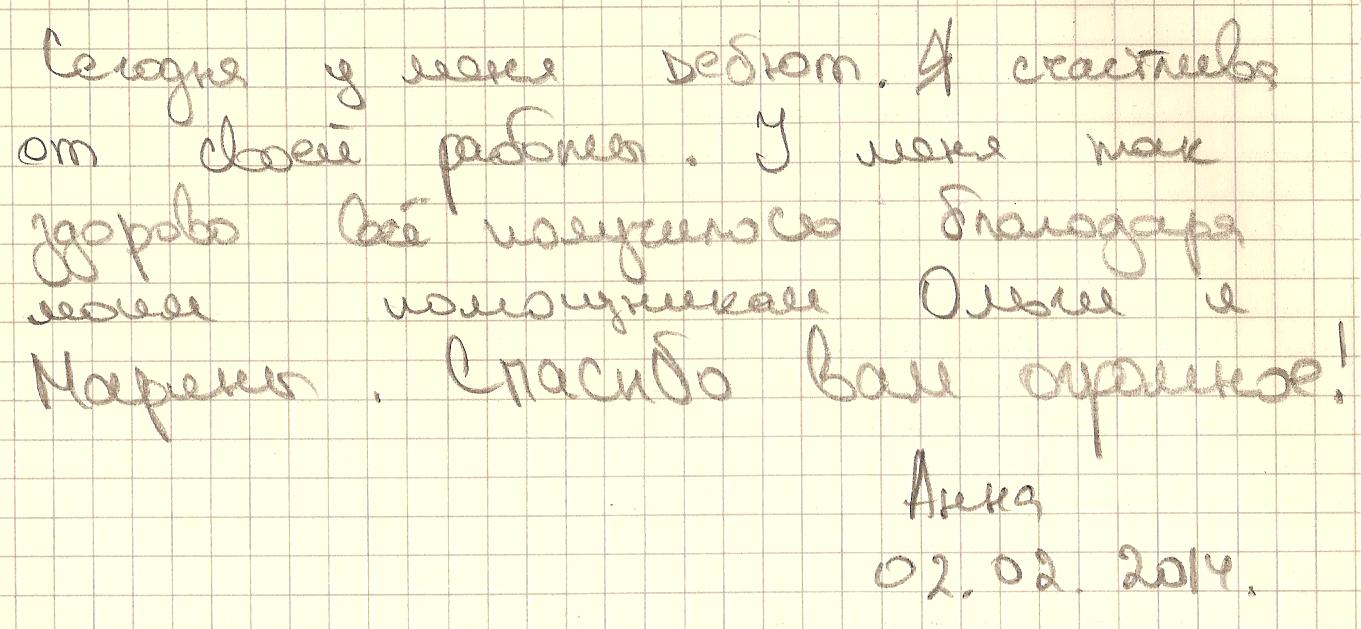 Сегодня у меня дебют. Я счастлива
от своей работы. У меня так
здорово всё получилось благодаря
моим помощникам Ольги и
Марины. Спасибо вам огромное!
Анна
02.02.2014.